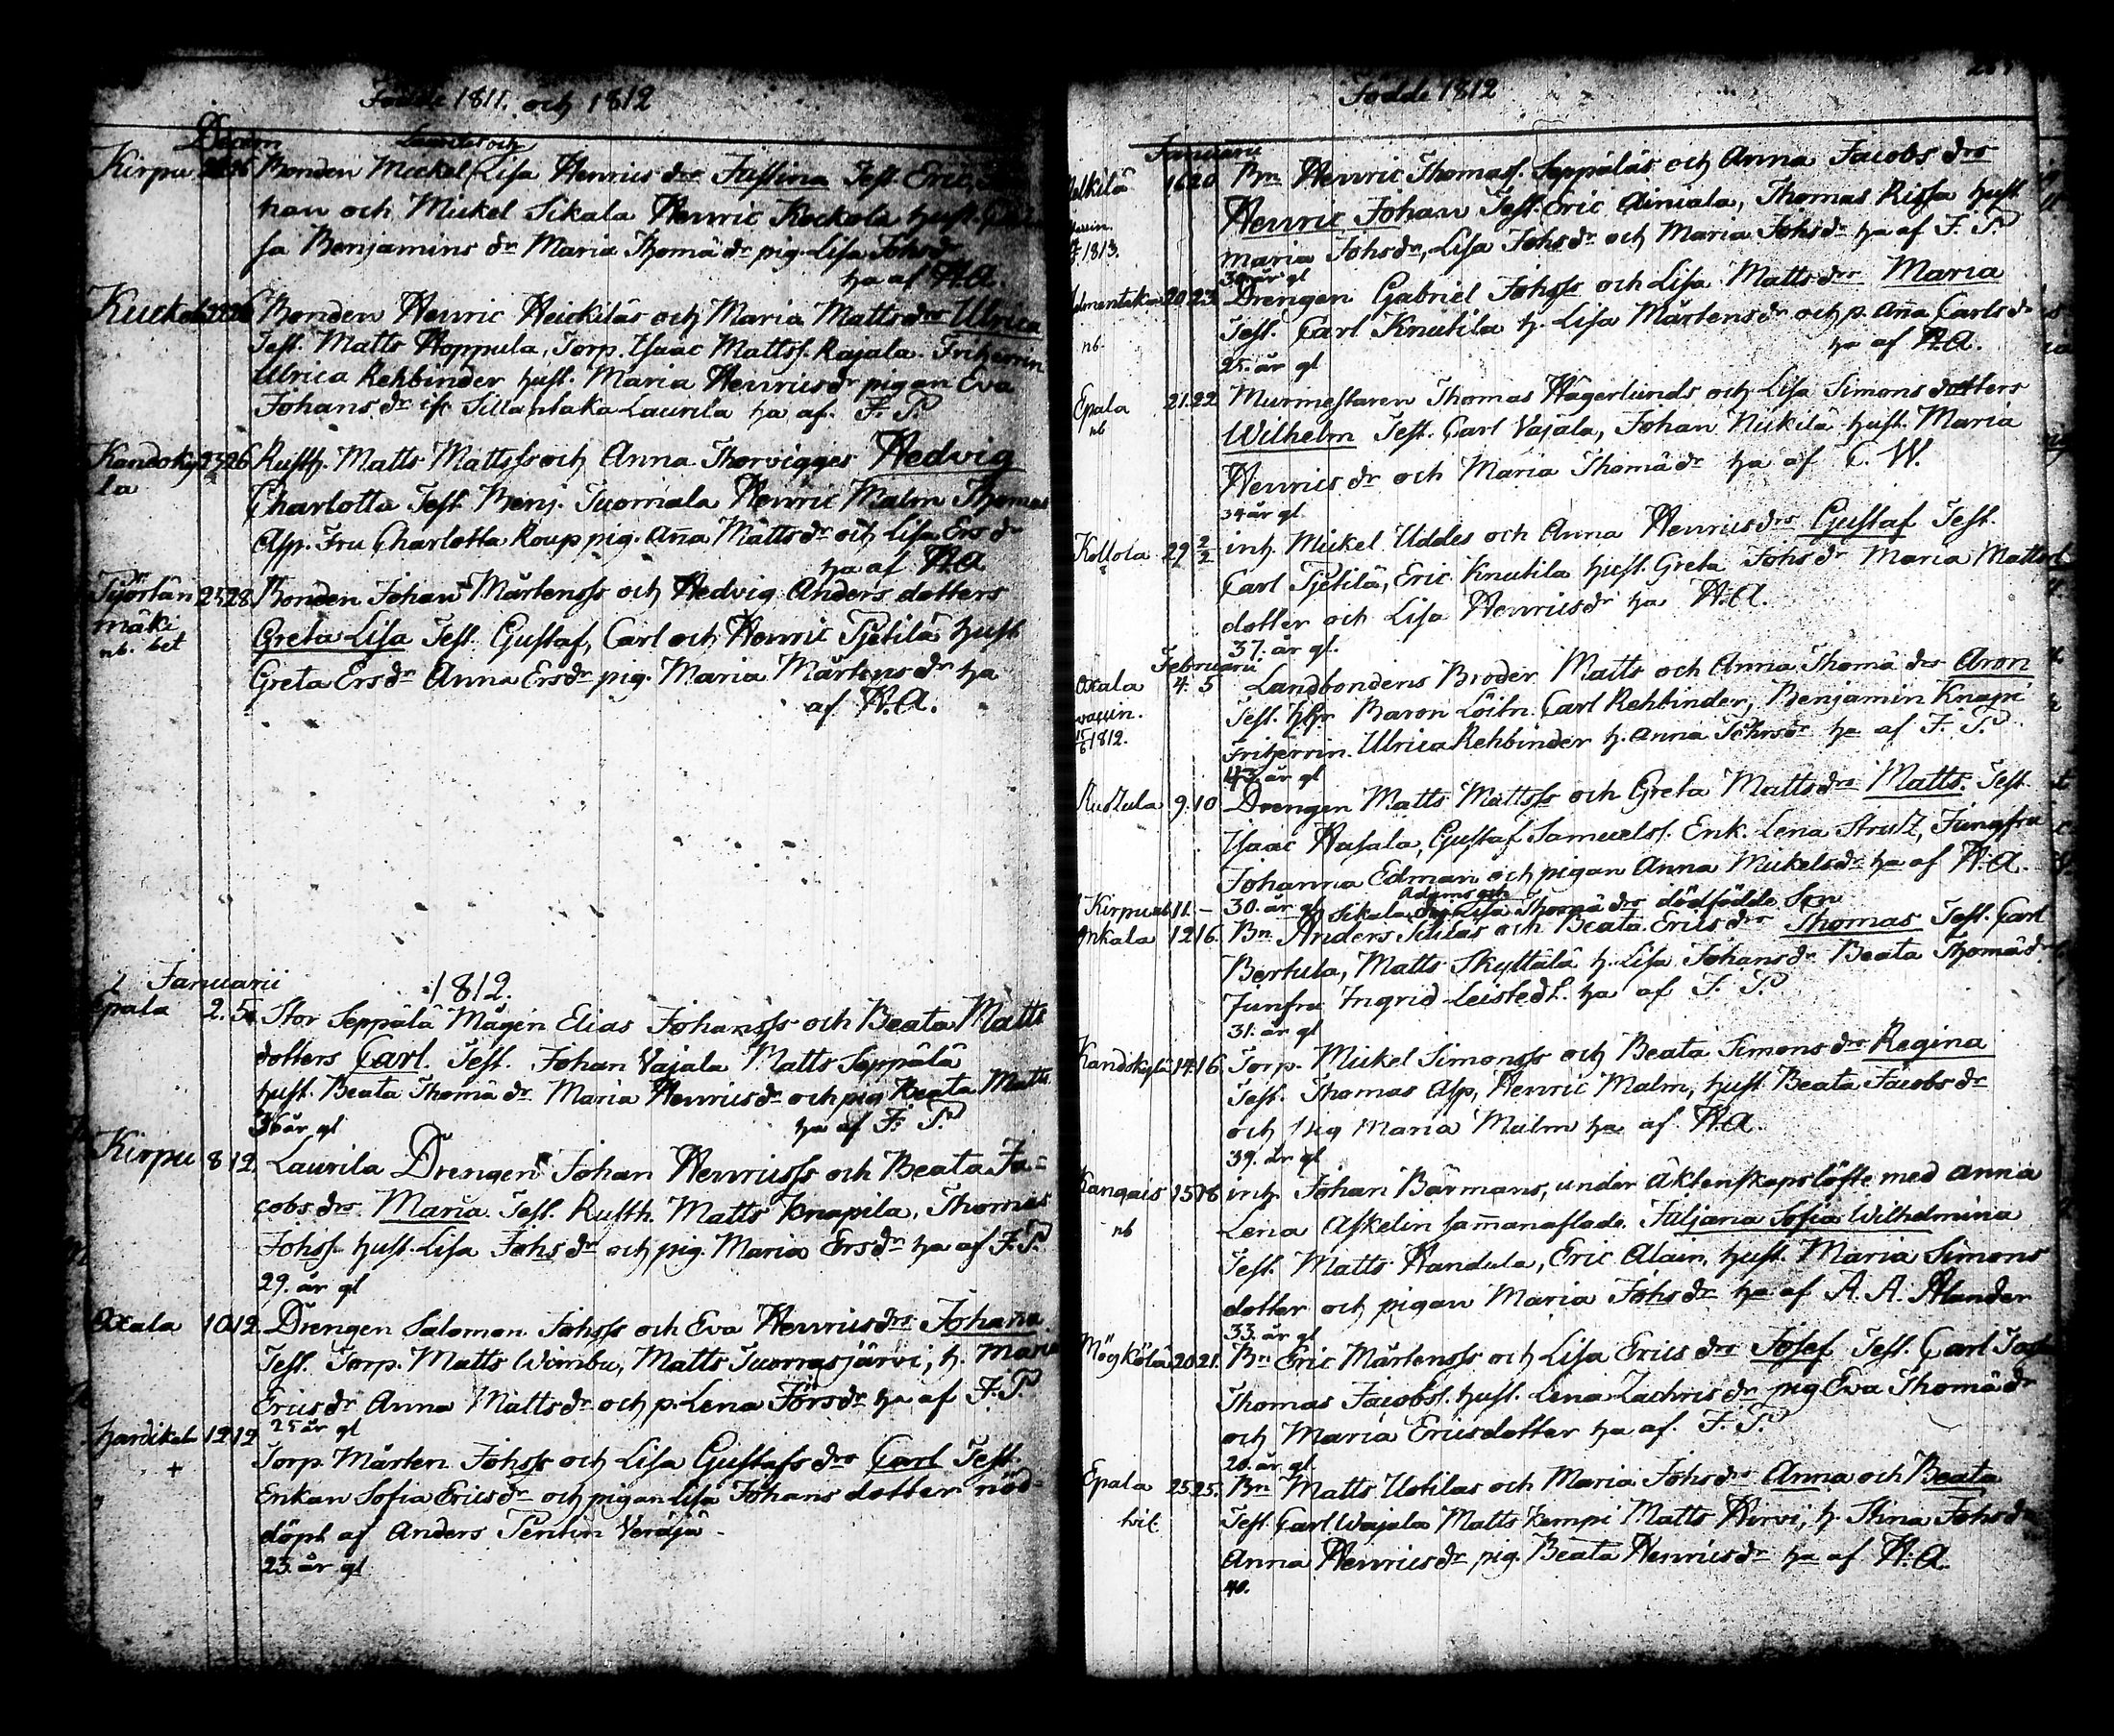 Födde 1811. och 1812
Decem
Laurilas och
Kirpu Bonden Mickel Lisa Henrics drs Justina Test. Eric,
han och Mickel Sikala Henric Kockola hust.
sa Benjamins dr Maria Thomä dr pig. Lisa Johsdr
ha af H.A.
Bonden Henric Heickiläs och Maria Matts drs Ulrica
Test. Matts Hoppula, Torp. Isaac Mattss. Rajala. Friherrin
Ulrica Rehbinder hust. Maria Henricsdr pigan Eva
Johans dr ifr. Sillanlaka Laurila ha af F. P.
Kandoky 23 26 Rusth. Matts Mattss och Anna Thorvigges Hedvig
la
Charlotta Test. Benj. Tuomala Henric Malm Thomas
Asp. Fru Charlotta Roup pig. Aña Mattsdr och Lisa Ersdr
ha af H.A
23 28 Bonden Johan Mårtenss och Hedvig Anders dotters
mäki
nb. bet
Greta Lisa Test. Gustaf, Carl och Henric Pjetilä hust
Greta Ersdr Anna Ersdr pig. Maria Mårtensdr ha
af H.A.
Januarii 1812.
2. 5. Stor Seppälä Mågen Elias Johanss och Beata Matts
dotters Carl. Test. Johan Vajala Matts Seppälä
hust. Beata Thomä dr Maria Henricsdr och pig Beata Matts
36 år gl ha af F. P.
Kirpu 8 12. Laurila Drengen Johan Henricss och Beata Ja=
cobs drs Maria. Test. Rusth. Matts Knapila, Thomas
Johss. hust. Lisa Johsdr och pig. Maria Ersdr ha af F.P.
29. år gl
Oxala 10 12. Drengen Salomon Johss och Eva Henricsdrs Johaña
Test. Torp. Matts Wimbu, Matts Tuomasjärvi, h. Maria
Ericsdr Anna Mattsdr och p. Lena Jörsdr ha af F.P
25 år gl
12 12 Torp. Mårten Johss och Lisa Gustafs drs Carl Test.
+
Enkan Sofia Ericsdr och pigan Lisa Johans dotter nöd-
döpt af Anders Pentin Veräjä
23. år gl
Födde 1812
Januarii
16 20 Bn Henric Thomass. Seppäläs och Anna Jacobs drs
Henric Johan Test. Eric Ainiala, Thomas Rissa hust
1813.
Maria Johsdr, Lisa Johsdr och Maria Johsdr ha af F. P.
30 år gl
20 23 Drengen Gabriel Johss och Lisa Matts drs Maria
Test. Carl Knutila h. Lisa Mårtensdr och p. Aña Carlsdr
nb. ha af H.A.
25. år gl
Epala 21 22 Murmestaren Thomas Hägerlunds och Lisa Simons dotters
nb
Wilhelm Test. Carl Vajala, Johan Nickilä hust. Maria
Henrics dr och Maria Thomä dr ha af C. W.
34 år gl.
Kollola 29 2/2 inh. Mickel Uddes och Anna Henricsdrs Gustaf Test.
Carl Pjetilä, Eric Knutila hust. Greta Johsdr Maria Matts
dotter och Lisa Henricsdr ha H.A.
37. år gl.
Februarii
Oxala 4. 5 Landbondens Broder Matts och Anna Thomä drs Aron
vaccin.
Test. Baron Löitn. Carl Rehbinder, Benjamin Knapi
1812.
Friherrin. Ulrica Rehbinder h. Anna Johsdr ha af F. P.
43. år gl
9. 10 Drengen Matts Mattss och Greta Mattsdrs Matts. Test.
Isaac Hasala, Gustaf Samuelss. Enk. Lena Strutz, Jungfru
Johanna Edman och pigan Anna Mickelsdr ha af H.A.
30. år gl
Adams och
Kirpu nb 11. – Sikala Lisa Thomä drs dödfödde Son
12 16. Bn Anders och Beata Erics drs Thomas Test. Carl
Bertula, Matts Skyttälä h. Lisa Johansdr Beata Thomädr
Junfru Ingrid Leistedt. ha af F. P.
31. år gl
Kandokylä 14 16. Torp. Mickel Simonss och Beata Simons drs Regina
Test. Thomas Asp, Henric Malm, hust Beata Jacobs dr
och pig Maria Malm ha af H.A.
39. år gl
Kangais 15 18 inh. Johan Bärmans, under äktenskapslöfte med Anna
nb Lena Askelin samanaflade Juljana Sofia Wilhelmina
Test. Matts Handula, Eric Alain, hust. Maria Simons
dotter och pigan Maria Johsdr ha af A. A. Alander
33. år gl
20 21. Bn Eric Mårtenss och Lisa Erics drs Josef Test. Carl
Thomas Jacobss. hust. Lena Zachrisdr pig Eva Thomä dr
och Maria Ericsdotter ha af F. P.
26. år gl
Epala 25 25. Bn Matts Uotilas och Maria Johsdrs Anna och Beata
Test. Carl Wajala Matts Kempi Matts Hirvi, h. Stina Johsdr
Anna Henricsdr pig. Beata Henricsdr ha af H.A.
40.